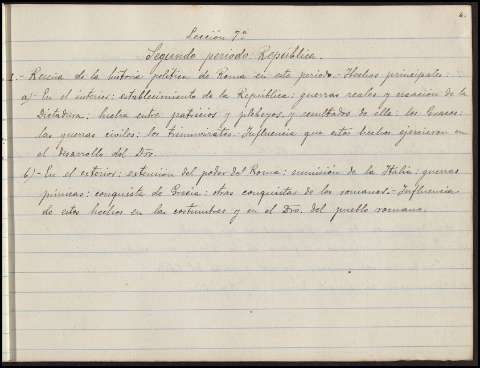 6.
Lección 7ª
Segundo periodo República
I.- Reseña de la historia politica de Roma en este periodo.- Hechos principales:
a)- En el interior: establecimiento de la Republica: guerras reales y creacion de la
Dictadura: lucha entre patricios y plebeyos y resultados de ella: los Gracos:
las guerras civiles: los triumviratos: Influencia que estos hechos ejercieron en
el desarrollo del Dro.
b)- En el exterior: extension del poder de Roma: sumisión de la Italia: guerras
púnicas: conquista de Grecia: otras conquistas de los romanos.- Influencia
de estos hechos en las costumbres y en el Dro. del pueblo romano.